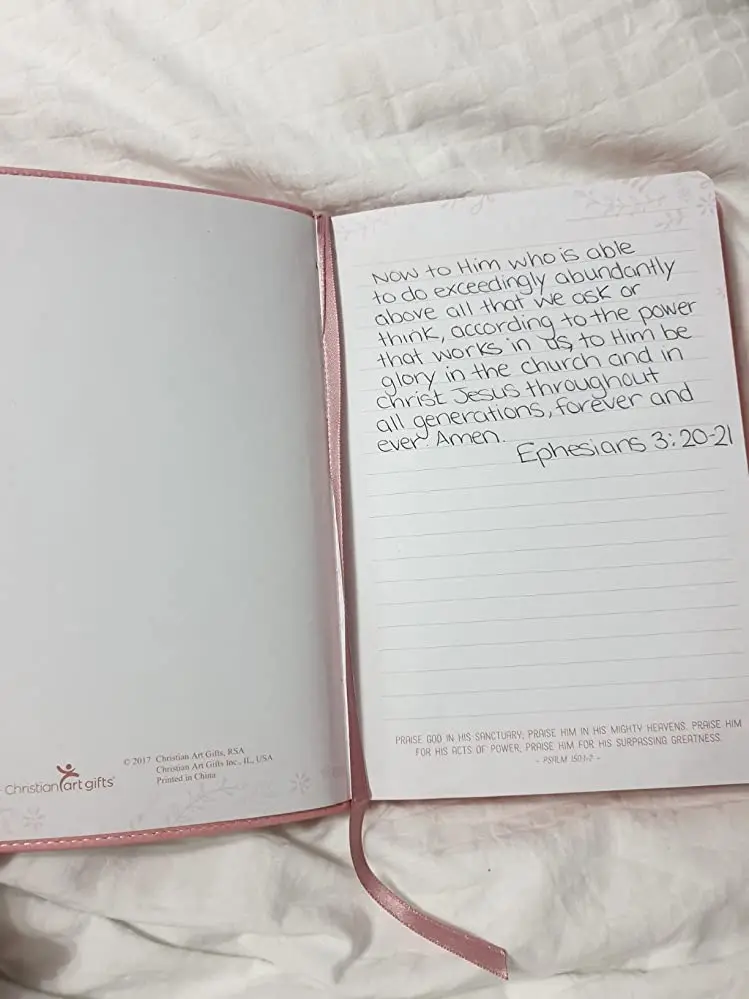 Christian art gifts®
© 2017 Christian Art Gifts, RSA
Christian Art Gifts Inc., IL, USA
Printed in China
Now to Him who is able
to do exceedingly abundantly
above all that we ask or
think, according to the power
that works in us, to Him be
glory in the church and in
christ Jesus throughout
all generations, forever and
ever. Amen.
Ephesians 3:20-21
PRAISE GOD IN HIS SANCTUARY; PRAISE HIM IN HIS MIGHTY HEAVENS. PRAISE HIM
FOR HIS ACTS OF POWER; PRAISE HIM FOR HIS SURPASSING GREATNESS.
- PSALM 150:1-2 -